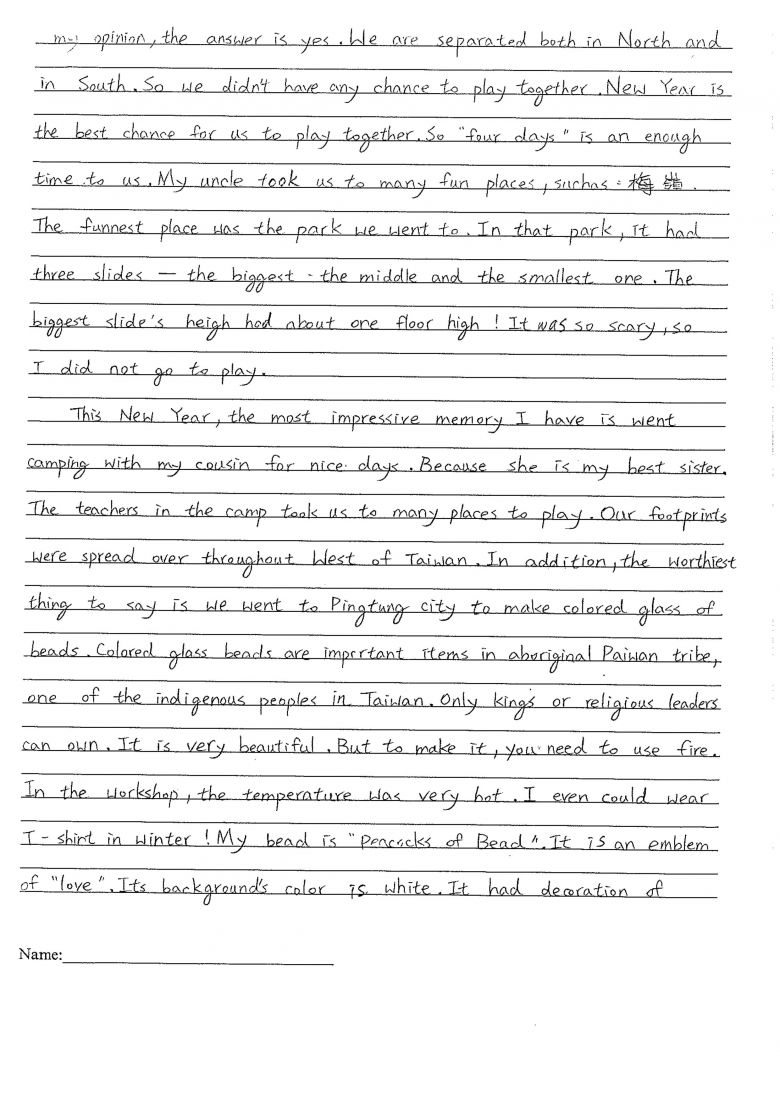 my opinion, the answer is yes. We are separated both in North and
in South. So we didn't have any chance to play together. New Year is
the best chance for us to play together. So "four days" is an enough
time to us. My uncle took us to many fun places, suchas : 梅嶺.
The funnest place was the park we went to. In that park, it had
three slides — the biggest - the middle and the smallest one. The
biggest slide's heigh had about one floor high ! It was so scary, so
I did not go to play.
This New Year, the most impressive memory I have is went
camping with my cousin for nice days. Because she is my best sister.
The teachers in the camp took us to many places to play. Our footprints
were spread over throughout West of Taiwan. In addition, the worthiest
thing to say is we went to Pingtung city to make colored glass of
beads. Colored glass beads are important items in aboriginal Paiwan tribe,
one of the indigenous peoples in Taiwan. Only kings or religious leaders
can own. It is very beautiful. But to make it, you need to use fire.
In the workshop, the temperature was very hot. I even could wear
T-shirt in winter ! My bead is "Peacocks of Bead". It is an emblem
of "love". Its background's color is white. It had decoration of
Name: